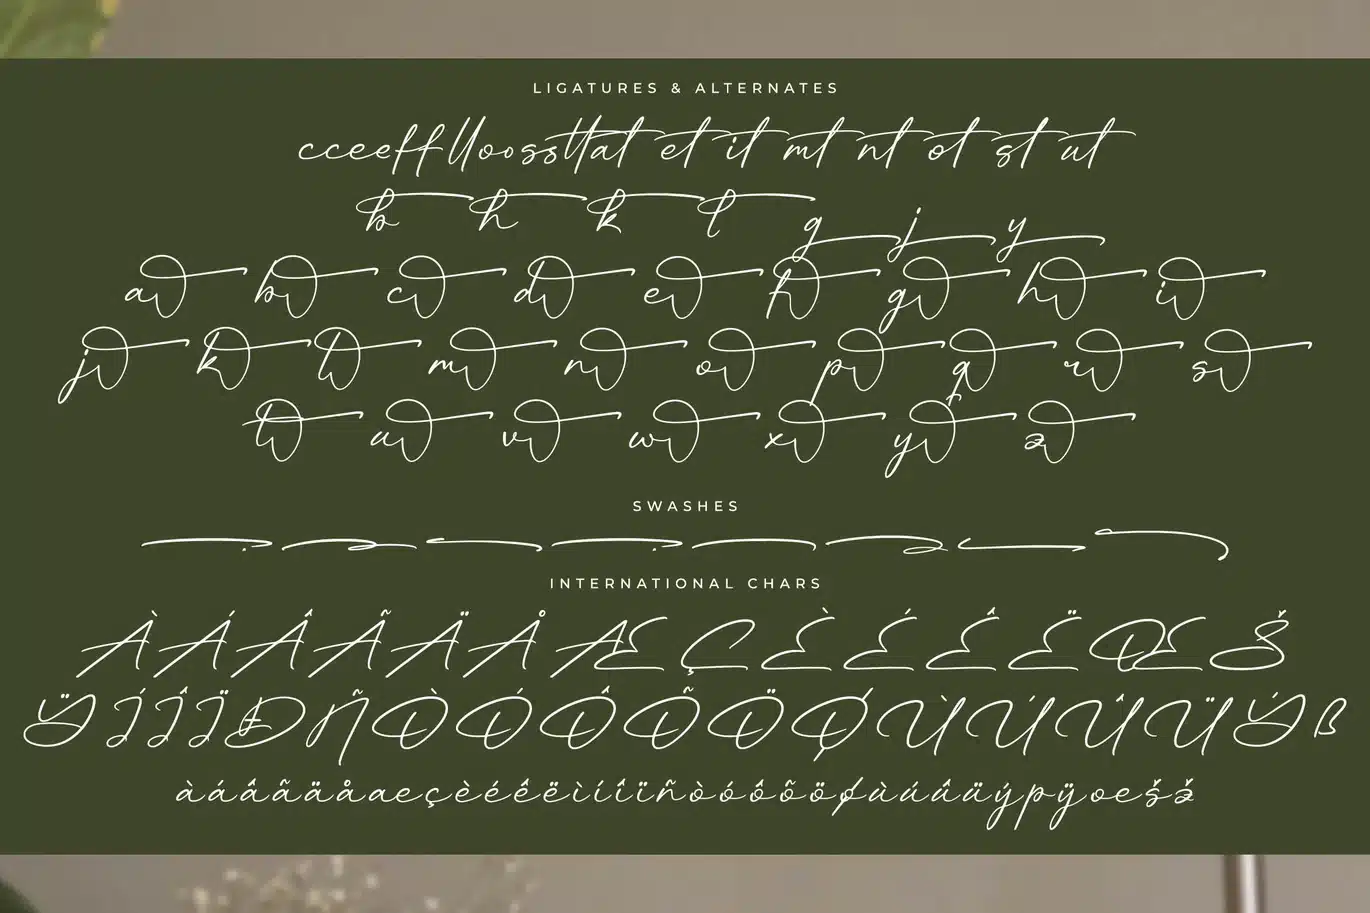 LIGATURES & ALTERNATES
cceefflloossttat et it mt nt ot st ut
b h k l g j y
a b c d e f g h i
j k l m n o p q r s
t u v w x y z
SWASHES
INTERNATIONAL CHARS
ÀÁÂÃÄÅÆÇÈÉÊËŒŠ
ŸÍÎÏÐÑÒÓÔÕÖØÙÚÛÜÝß
àáâãäåaeçèéêëìíîïñòóôõöøùúûüýþÿoešž